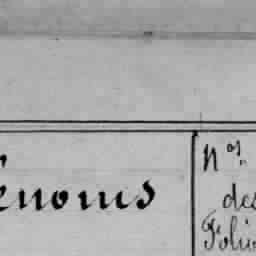 énoms
Nos.
des
Folios